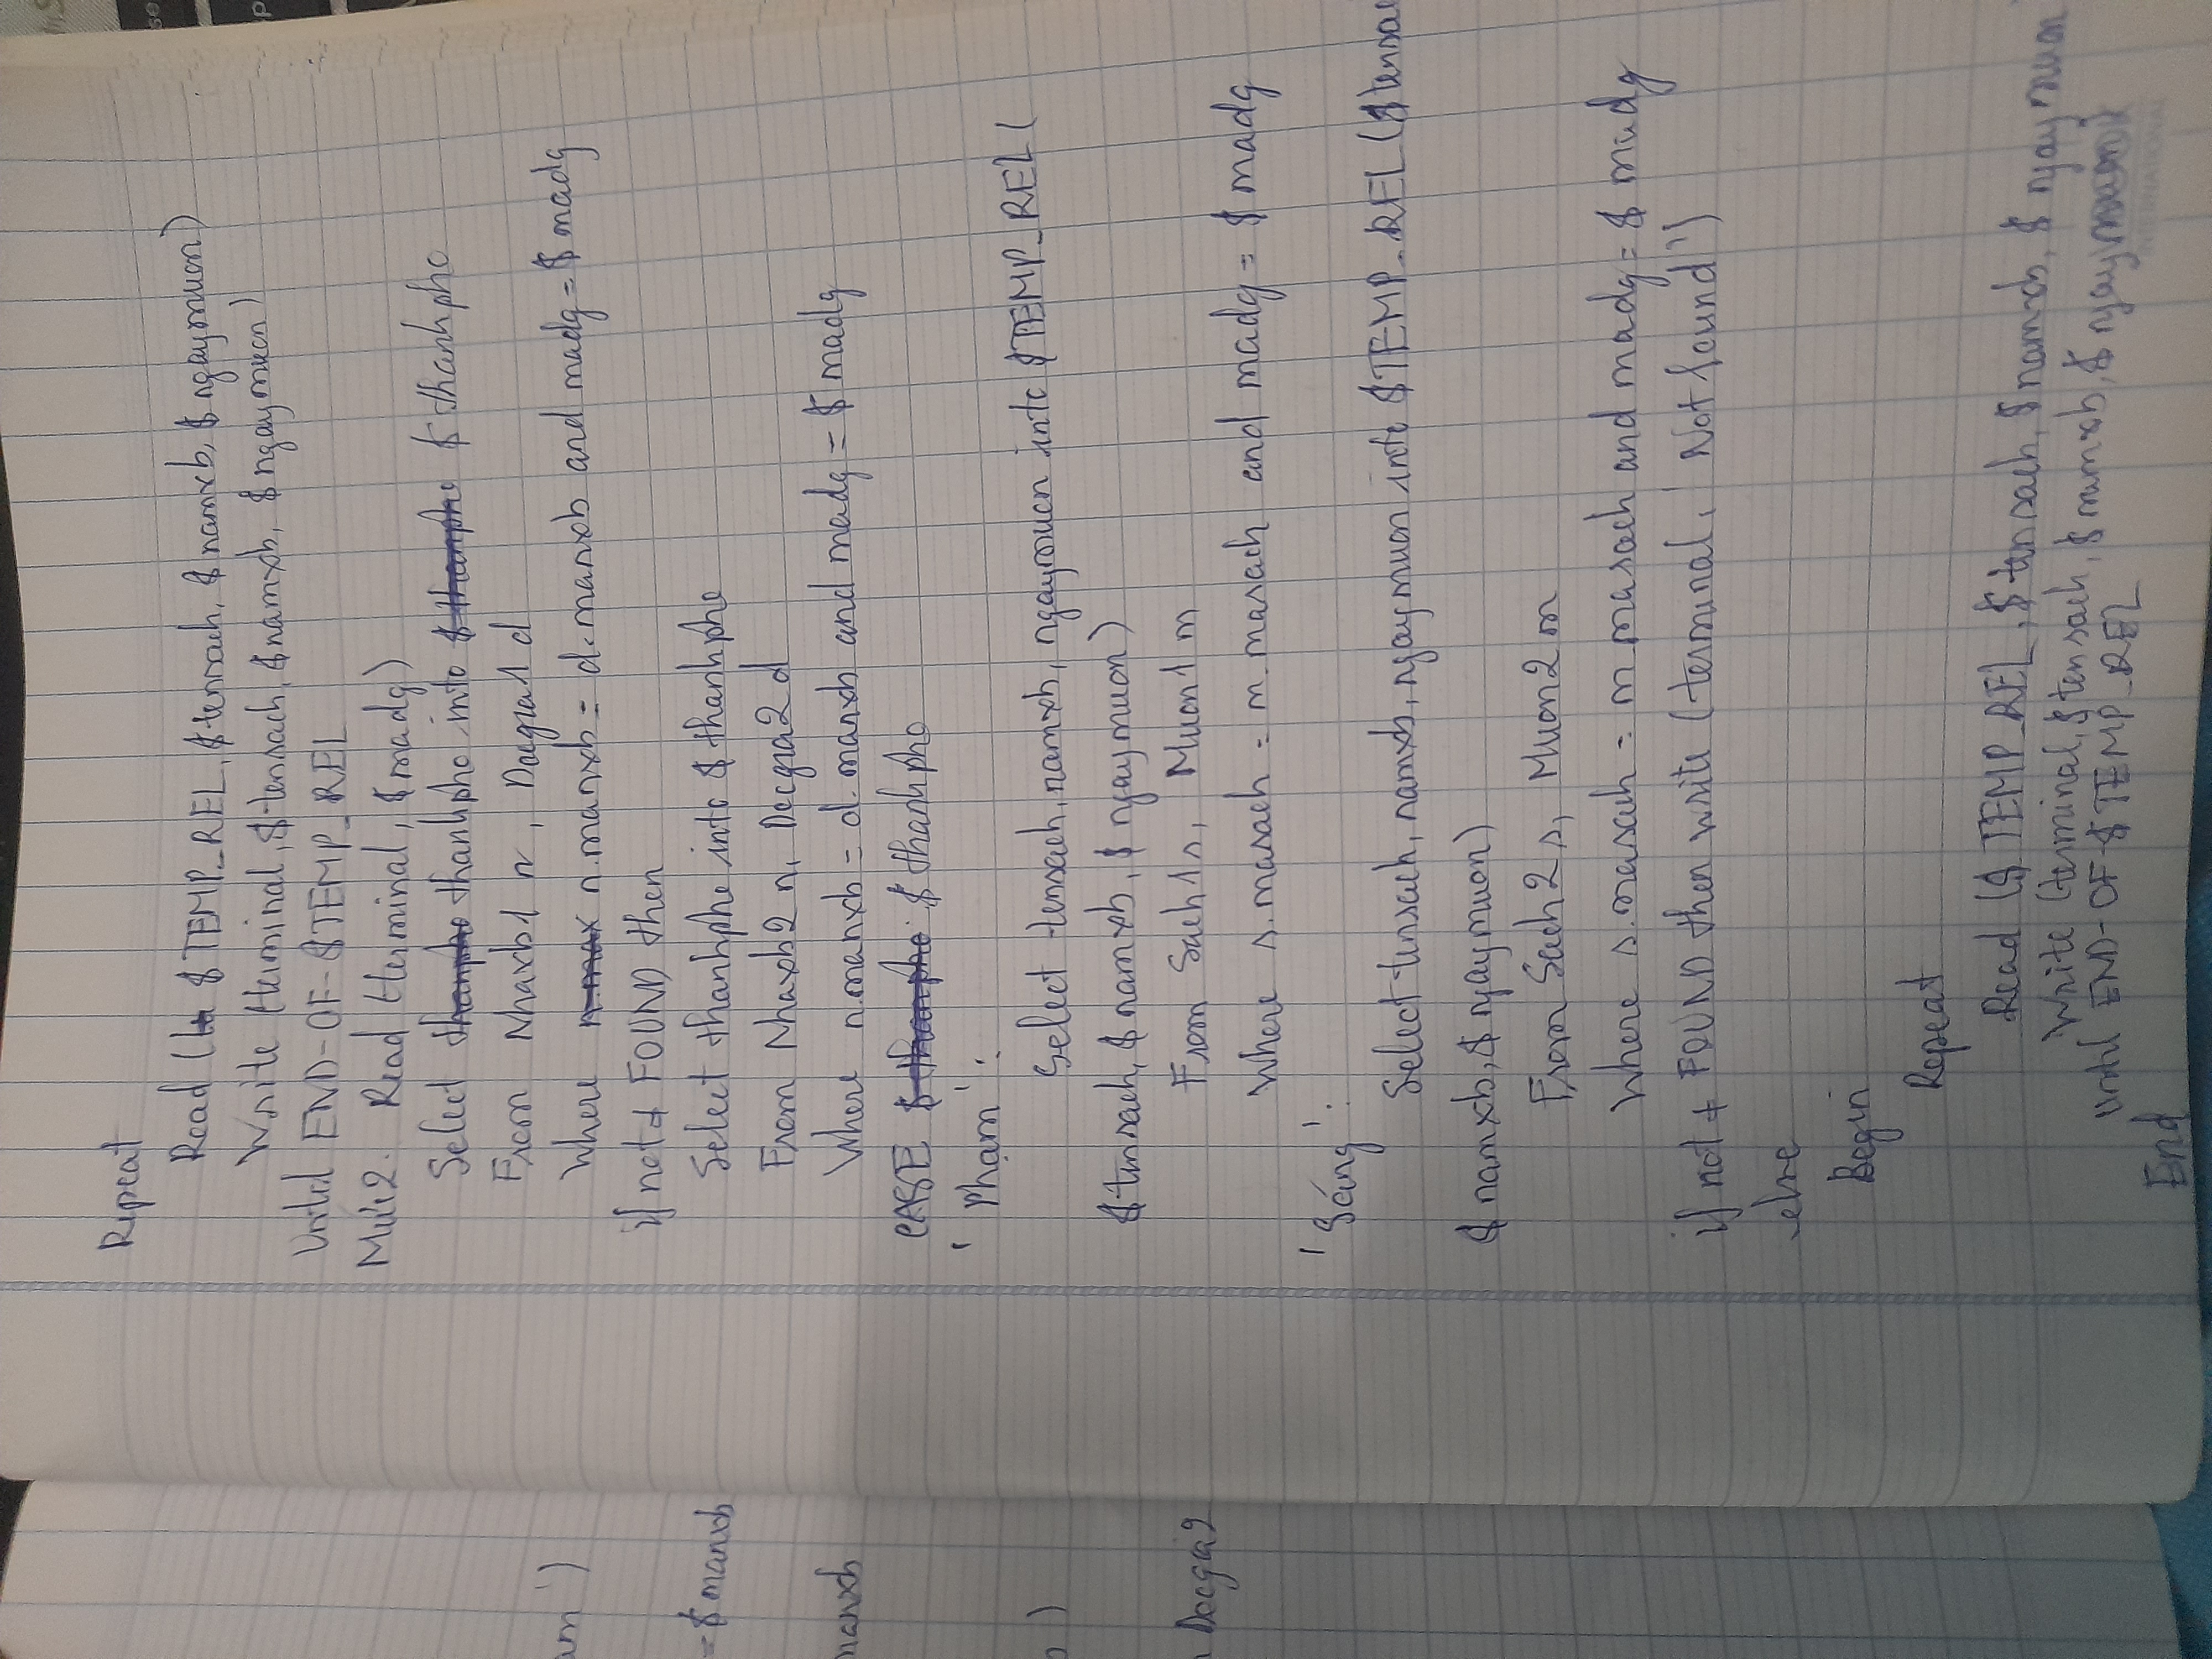 Repeat
Read ($TEMP_REL, $tensach, $namxb, $ngaymuon)
Write (terminal, $tensach, $namxb, $ngaymuon)
Until END-OF-$TEMP_REL
Mức 2. Read (terminal, $madg)
Select thanpho thanhpho into $thanpho $thanhpho
From Nhaxb1 n, Docgia1 d
Where n.max n.manxb = d.manxb and madg = $madg
if not # FOUND then
Select thanhpho into $thanhpho
From Nhaxb2 n, Docgia2 d
Where n.manxb = d.manxb and madg = $madg
CASE $thanpho $thanhpho
'Phạm':
Select tensach, namxb, ngaymuon into $TEMP_REL (
$tensach, $namxb, $ngaymuon)
From Sach1 s, Muon1 m
Where s.masach = m.masach and madg = $madg
'Sáng':
Select tensach, namxb, ngaymuon into $TEMP_REL ($tensac
$namxb, $ngaymuon)
From Sach2 s, Muon2 m
Where s.masach = m.masach and madg = $madg
if not # FOUND then write (terminal, 'Not found')
else
Begin
Repeat
Read ($TEMP_REL, $tensach, $namxb, $ngaymuon
Write (terminal, $tensach, $namxb, $ngaymuon)
Until END-OF-$TEMP_REL
End
= $manxb
manxb
Docgia2